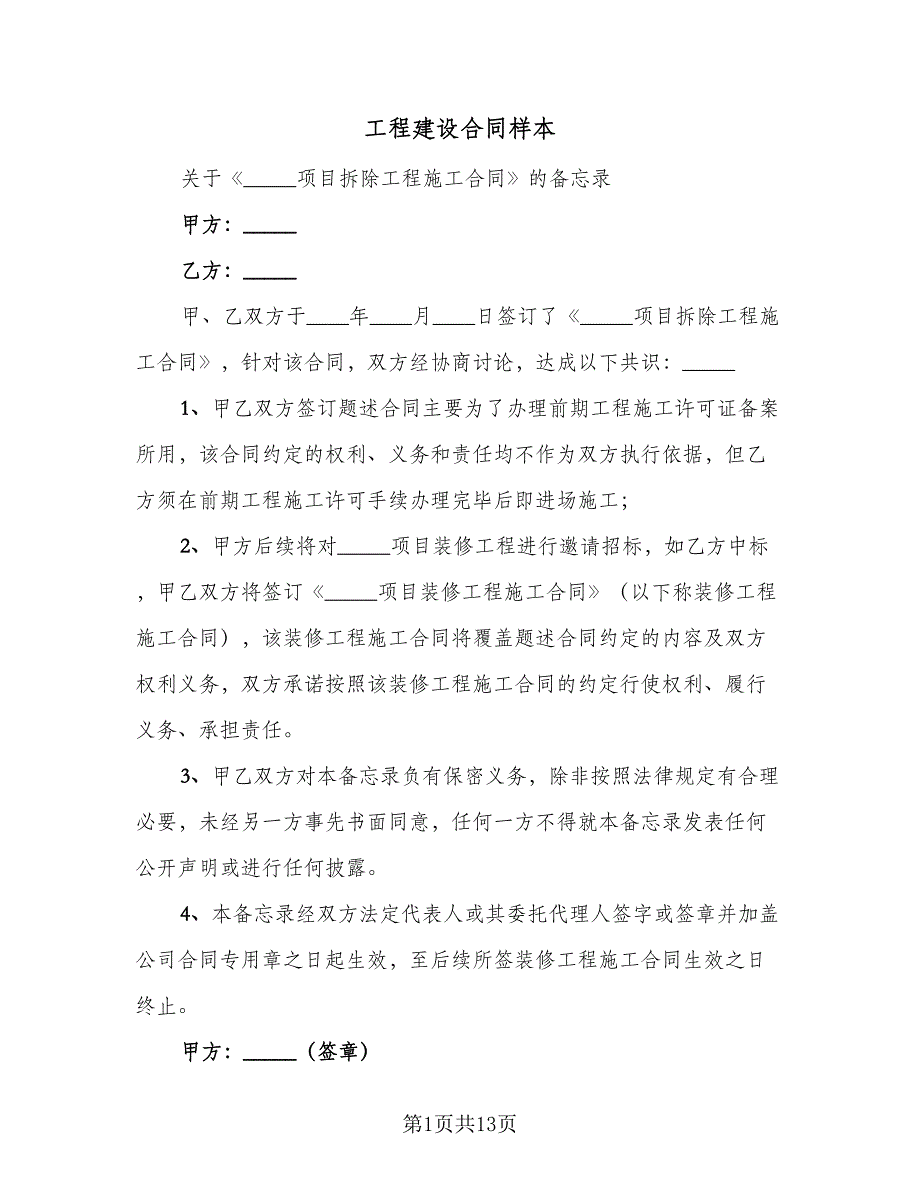 工程建设合同样本
关于《_____项目拆除工程施工合同》的备忘录
甲方：_____
乙方：_____
甲、乙双方于____年____月____日签订了《_____项目拆除工程施
工合同》，针对该合同，双方经协商讨论，达成以下共识：_____
1、甲乙双方签订题述合同主要为了办理前期工程施工许可证备案
所用，该合同约定的权利、义务和责任均不作为双方执行依据，但乙
方须在前期工程施工许可手续办理完毕后即进场施工；
2、甲方后续将对_____项目装修工程进行邀请招标，如乙方中标
，甲乙双方将签订《_____项目装修工程施工合同》（以下称装修工程
施工合同），该装修工程施工合同将覆盖题述合同约定的内容及双方
权利义务，双方承诺按照该装修工程施工合同的约定行使权利、履行
义务、承担责任。
3、甲乙双方对本备忘录负有保密义务，除非按照法律规定有合理
必要，未经另一方事先书面同意，任何一方不得就本备忘录发表任何
公开声明或进行任何披露。
4、本备忘录经双方法定代表人或其委托代理人签字或签章并加盖
公司合同专用章之日起生效，至后续所签装修工程施工合同生效之日
终止。
甲方：_____（签章）
第1页共13页